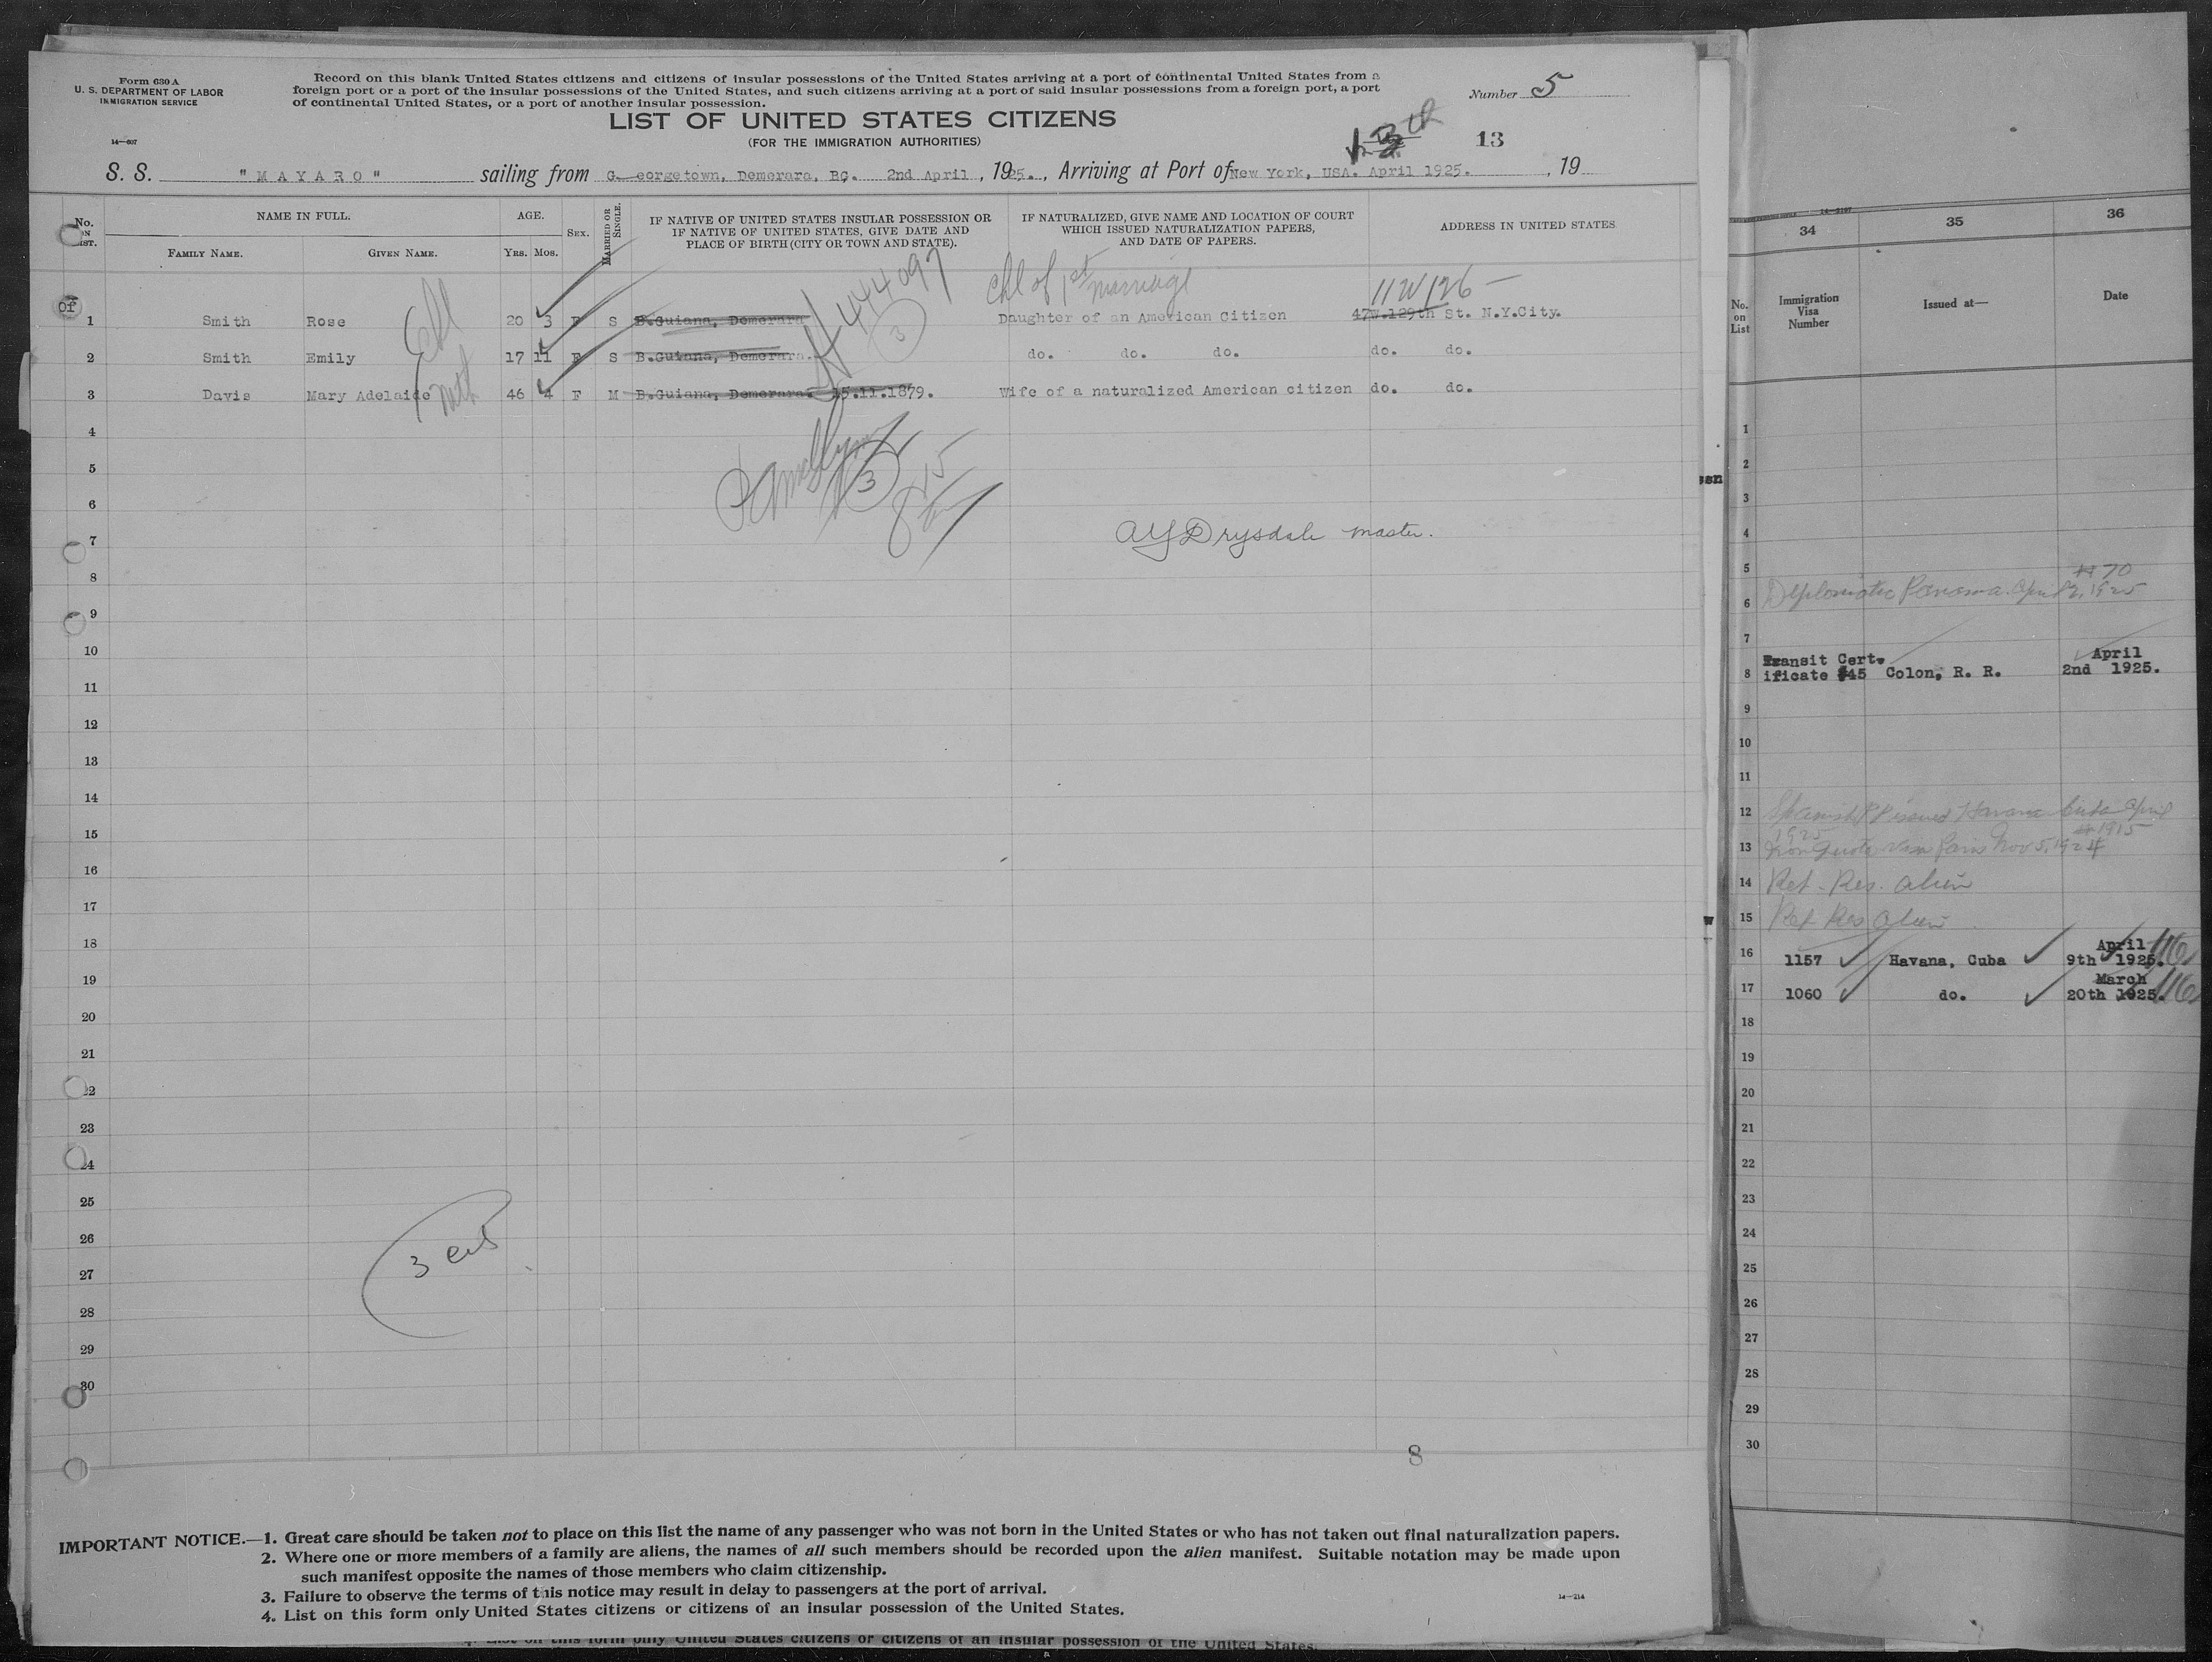 Form 630 A
U. S. DEPARTMENT OF LABOR
IMMIGRATION SERVICE
14—607
Record on this blank United States citizens and citizens of insular possessions of the United States arriving at a port of continental United States from a
foreign port or a port of the insular possessions of the United States, and such citizens arriving at a port of said insular possessions from a foreign port, a port
of continental United States, or a port of another insular possession.
Number 5
LIST OF UNITED STATES CITIZENS
(FOR THE IMMIGRATION AUTHORITIES)
13th 13
S. S. "MAYARO" sailing from G eorgetown, Demerara, BG. 2nd April , 1925. , Arriving at Port of New York, USA. April 1925. , 19
No. ON LIST.
NAME IN FULL.
FAMILY NAME. GIVEN NAME.
AGE.
YRS. MOS.
SEX.
MARRIED OR SINGLE.
IF NATIVE OF UNITED STATES INSULAR POSSESSION OR
IF NATIVE OF UNITED STATES, GIVE DATE AND
PLACE OF BIRTH (CITY OR TOWN AND STATE).
IF NATURALIZED, GIVE NAME AND LOCATION OF COURT
WHICH ISSUED NATURALIZATION PAPERS,
AND DATE OF PAPERS.
ADDRESS IN UNITED STATES
444097
3
Chl of 1st marriage
11 W 126 —
1 Smith Rose 20 3 F S B.Guiana, Demerara Daughter of an American Citizen 47W.129th St. N.Y.City.
2 Smith Emily 17 11 F S B.Guiana, Demerara. do. do. do. do. do.
3 Davis Mary Adelaide 46 4 F M B.Guiana, Demerara. 15.11.1879. Wife of a naturalized American citizen do. do.
4
5
3
6
7
AY Drysdale master.
8
9
10
11
12
13
14
15
16
17
18
19
20
21
22
23
24
25
26
3
27
28
29
30
8
IMPORTANT NOTICE.—1. Great care should be taken not to place on this list the name of any passenger who was not born in the United States or who has not taken out final naturalization papers.
2. Where one or more members of a family are aliens, the names of all such members should be recorded upon the alien manifest. Suitable notation may be made upon
such manifest opposite the names of those members who claim citizenship.
3. Failure to observe the terms of this notice may result in delay to passengers at the port of arrival.
4. List on this form only United States citizens or citizens of an insular possession of the United States.
14—214
4. List on this form only United States citizens or citizens of an insular possession of the United States.
34 35 36
No. on List
Immigration Visa Number
Issued at—
Date
1
2
3
4
5
# 70
6 Diplomatic Panama. April 2, 1925
7
Transit Cert. April
8 ificate #45 Colon, R. R. 2nd 1925.
9
10
11
12 Spanish PP issued Havana Cuba April
1925 # 1915
13 Non Quota Visa Paris Nov 5, 1924
14 Ret. Res. alien
15 Ret Res alien
April
16 1157 Havana, Cuba 9th 1925. 116
March
17 1060 do. 20th 1925. 116
18
19
20
21
22
23
24
25
26
27
28
29
30